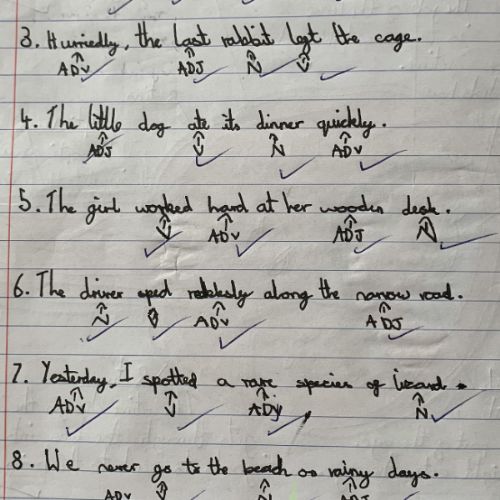 3. Hurriedly, the last rabbit left the cage.
ADV ADJ N V
4. The little dog ate its dinner quickly.
ADJ V N ADV
5. The girl worked hard at her wooden desk.
V ADV ADJ N
6. The driver sped recklessly along the narrow road.
N V ADV ADJ
7. Yesterday, I spotted a rare species of lizard.
ADV V ADJ N
8. We never go to the beach on rainy days.
ADV V N ADJ